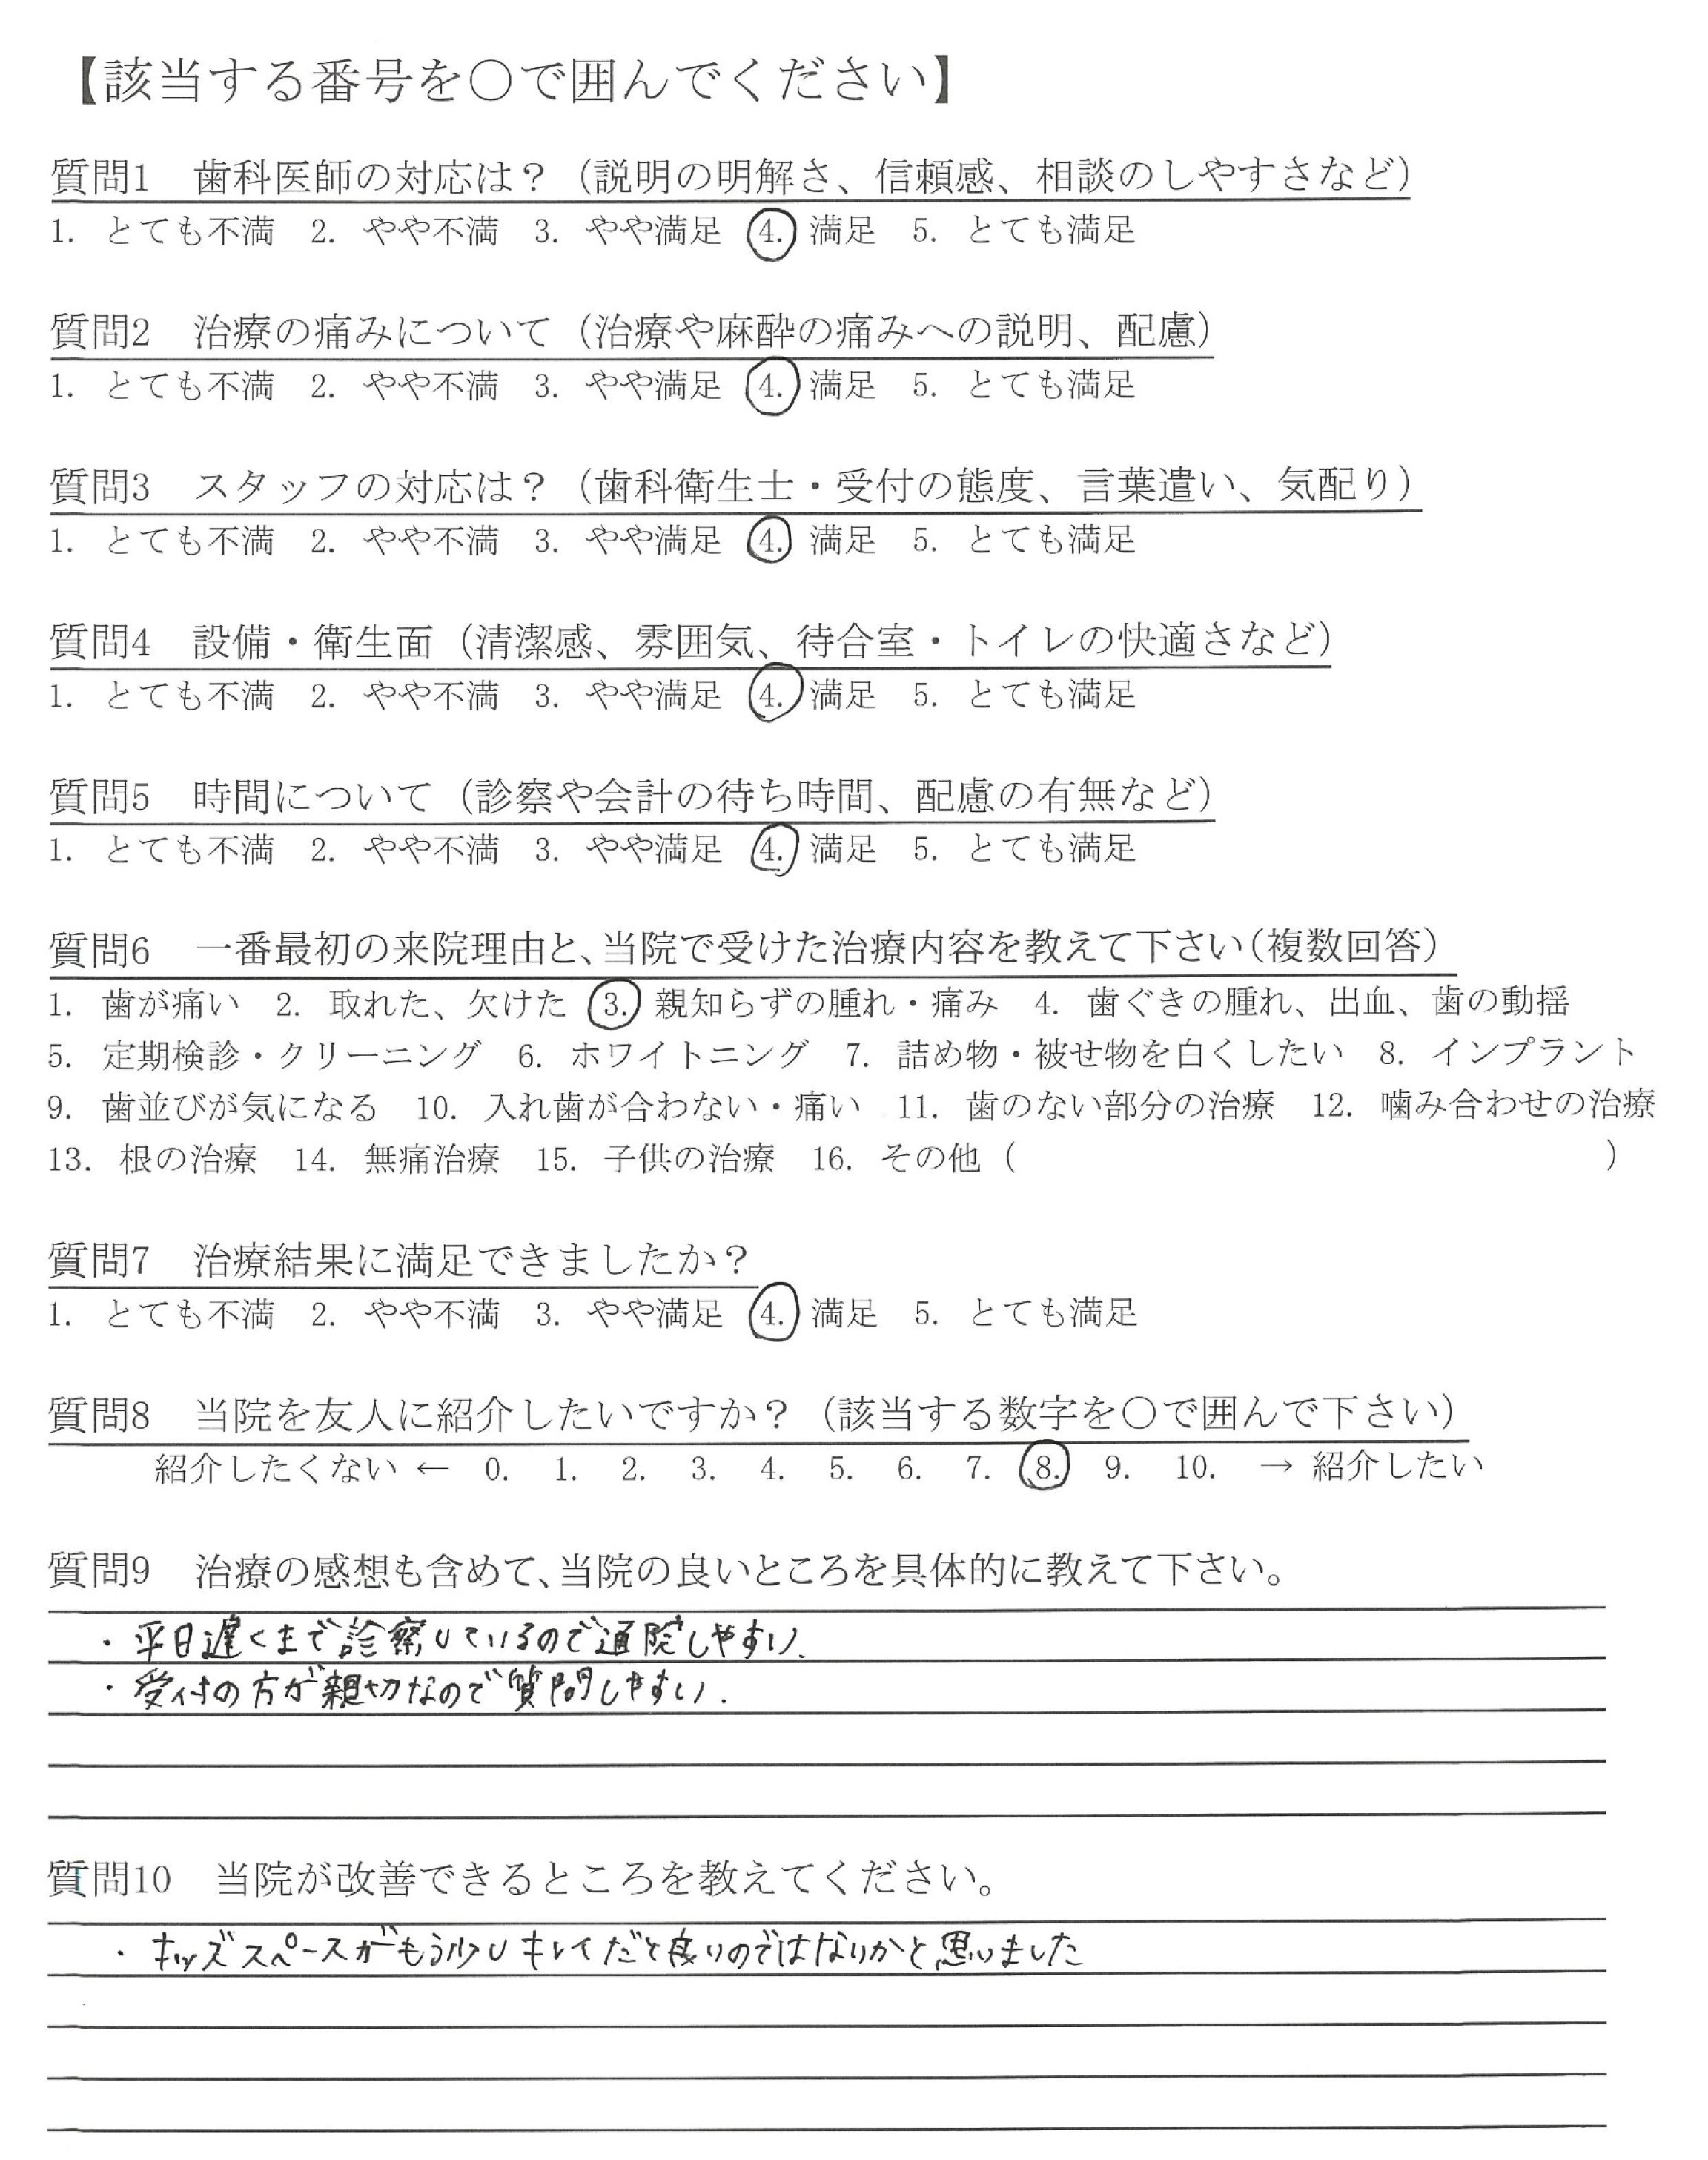 【該当する番号を○で囲んでください】
質問1　歯科医師の対応は？（説明の明解さ、信頼感、相談のしやすさなど）
1. とても不満　2. やや不満　3. やや満足　4. 満足　5. とても満足
質問2　治療の痛みについて（治療や麻酔の痛みへの説明、配慮）
1. とても不満　2. やや不満　3. やや満足　4. 満足　5. とても満足
質問3　スタッフの対応は？（歯科衛生士・受付の態度、言葉遣い、気配り）
1. とても不満　2. やや不満　3. やや満足　4. 満足　5. とても満足
質問4　設備・衛生面（清潔感、雰囲気、待合室・トイレの快適さなど）
1. とても不満　2. やや不満　3. やや満足　4. 満足　5. とても満足
質問5　時間について（診察や会計の待ち時間、配慮の有無など）
1. とても不満　2. やや不満　3. やや満足　4. 満足　5. とても満足
質問6　一番最初の来院理由と、当院で受けた治療内容を教えて下さい（複数回答）
1. 歯が痛い　2. 取れた、欠けた　3. 親知らずの腫れ・痛み　4. 歯ぐきの腫れ、出血、歯の動揺
5. 定期検診・クリーニング　6. ホワイトニング　7. 詰め物・被せ物を白くしたい　8. インプラント
9. 歯並びが気になる　10. 入れ歯が合わない・痛い　11. 歯のない部分の治療　12. 噛み合わせの治療
13. 根の治療　14. 無痛治療　15. 子供の治療　16. その他（　　　　　　　　　　）
質問7　治療結果に満足できましたか？
1. とても不満　2. やや不満　3. やや満足　4. 満足　5. とても満足
質問8　当院を友人に紹介したいですか？（該当する数字を○で囲んで下さい）
紹介したくない ←　0.　1.　2.　3.　4.　5.　6.　7.　8.　9.　10.　→ 紹介したい
質問9　治療の感想も含めて、当院の良いところを具体的に教えて下さい。
・平日遅くまで診察しているので通院しやすい.
・受付の方が親切なので質問しやすい.
質問10　当院が改善できるところを教えてください。
・キッズスペースがもう少しキレイだと良いのではないかと思いました